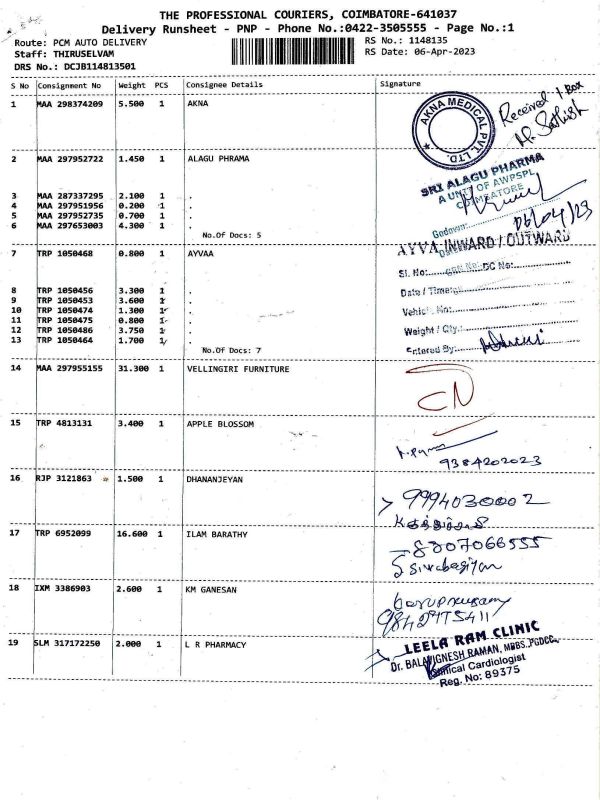 THE PROFESSIONAL COURIERS, COIMBATORE-641037
Delivery Runsheet - PNP - Phone No.:0422-3505555 - Page No.:1
Route: PCM AUTO DELIVERY RS No.: 1148135
Staff: THIRUSELVAM RS Date: 06-Apr-2023
DRS No.: DCJB114813501
S No Consignment No Weight PCS Consignee Details Signature
1 MAA 298374209 5.500 1 AKNA
AKNA MEDICAL PVT. LTD. ★
Received 1 Box
M. Sathish
2 MAA 297952722 1.450 1 ALAGU PHRAMA
SRI ALAGU PHARMA
A UNIT OF AWPSPL
COIMBATORE
3 MAA 287337295 2.100 1 .
4 MAA 297951956 0.200 1 .
5 MAA 297952735 0.700 1 .
6 MAA 297653003 4.300 1 .
06/04/23
No.Of Docs: 5
7 TRP 1050468 0.800 1 AYVAA
AYVA INWARD / OUTWARD
Sl. No: DC No:
8 TRP 1050456 3.300 1 .
Date / Time:
9 TRP 1050453 3.600 1 .
10 TRP 1050474 1.300 1 .
11 TRP 1050475 0.800 1 .
12 TRP 1050486 3.750 1 .
Weight / Qty.:
13 TRP 1050464 1.700 1 .
No.Of Docs: 7
Entered By:
14 MAA 297955155 31.300 1 VELLINGIRI FURNITURE
15 TRP 4813131 3.400 1 APPLE BLOSSOM
9384202023
16 RJP 3121863 1.500 1 DHANANJEYAN
9994030002
17 TRP 6952099 16.600 1 ILAM BARATHY
8807066555
18 IXM 3386903 2.600 1 KM GANESAN
9842475411
19 SLM 317172250 2.000 1 L R PHARMACY
LEELA RAM CLINIC
Dr. BALAVIGNESH RAMAN, MBBS.,PGDCC.,
Clinical Cardiologist
Reg. No: 89375